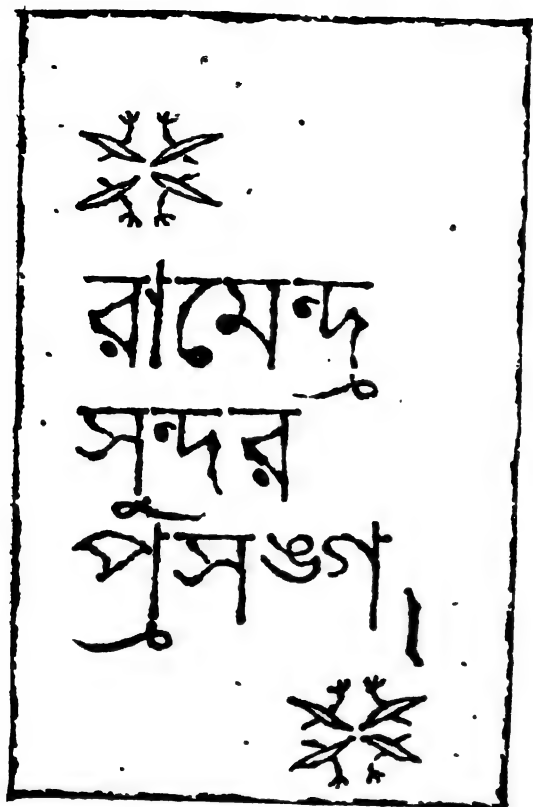 রামেন্দ্র
সুন্দর
প্রসঙ্গ।